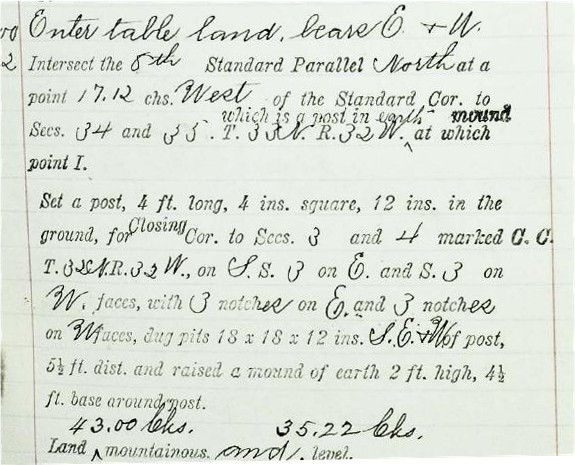 Enter table land. bears E. & W.
2 Intersect the 8th Standard Parallel North at a
point 17.12 chs. West of the Standard Cor. to
which is a post in earth mound
Secs. 34 and 35. T. 33 N. R. 32 W. ^ at which
point I.
Set a post, 4 ft. long, 4 ins. square, 12 ins. in the
ground, for Closing Cor. to Secs. 3 and 4 marked C. C.
T. 32 N. R. 32 W., on S. S. 3 on E. and S. 3 on
W. faces, with 3 notches on E. and 3 notches
on W faces, dug pits 18 x 18 x 12 ins. S. E. & W of post,
5½ ft. dist. and raised a mound of earth 2 ft. high, 4½
ft. base around post.
43.00 Chs. 35.22 Chs.
Land ^ mountainous. and. level.